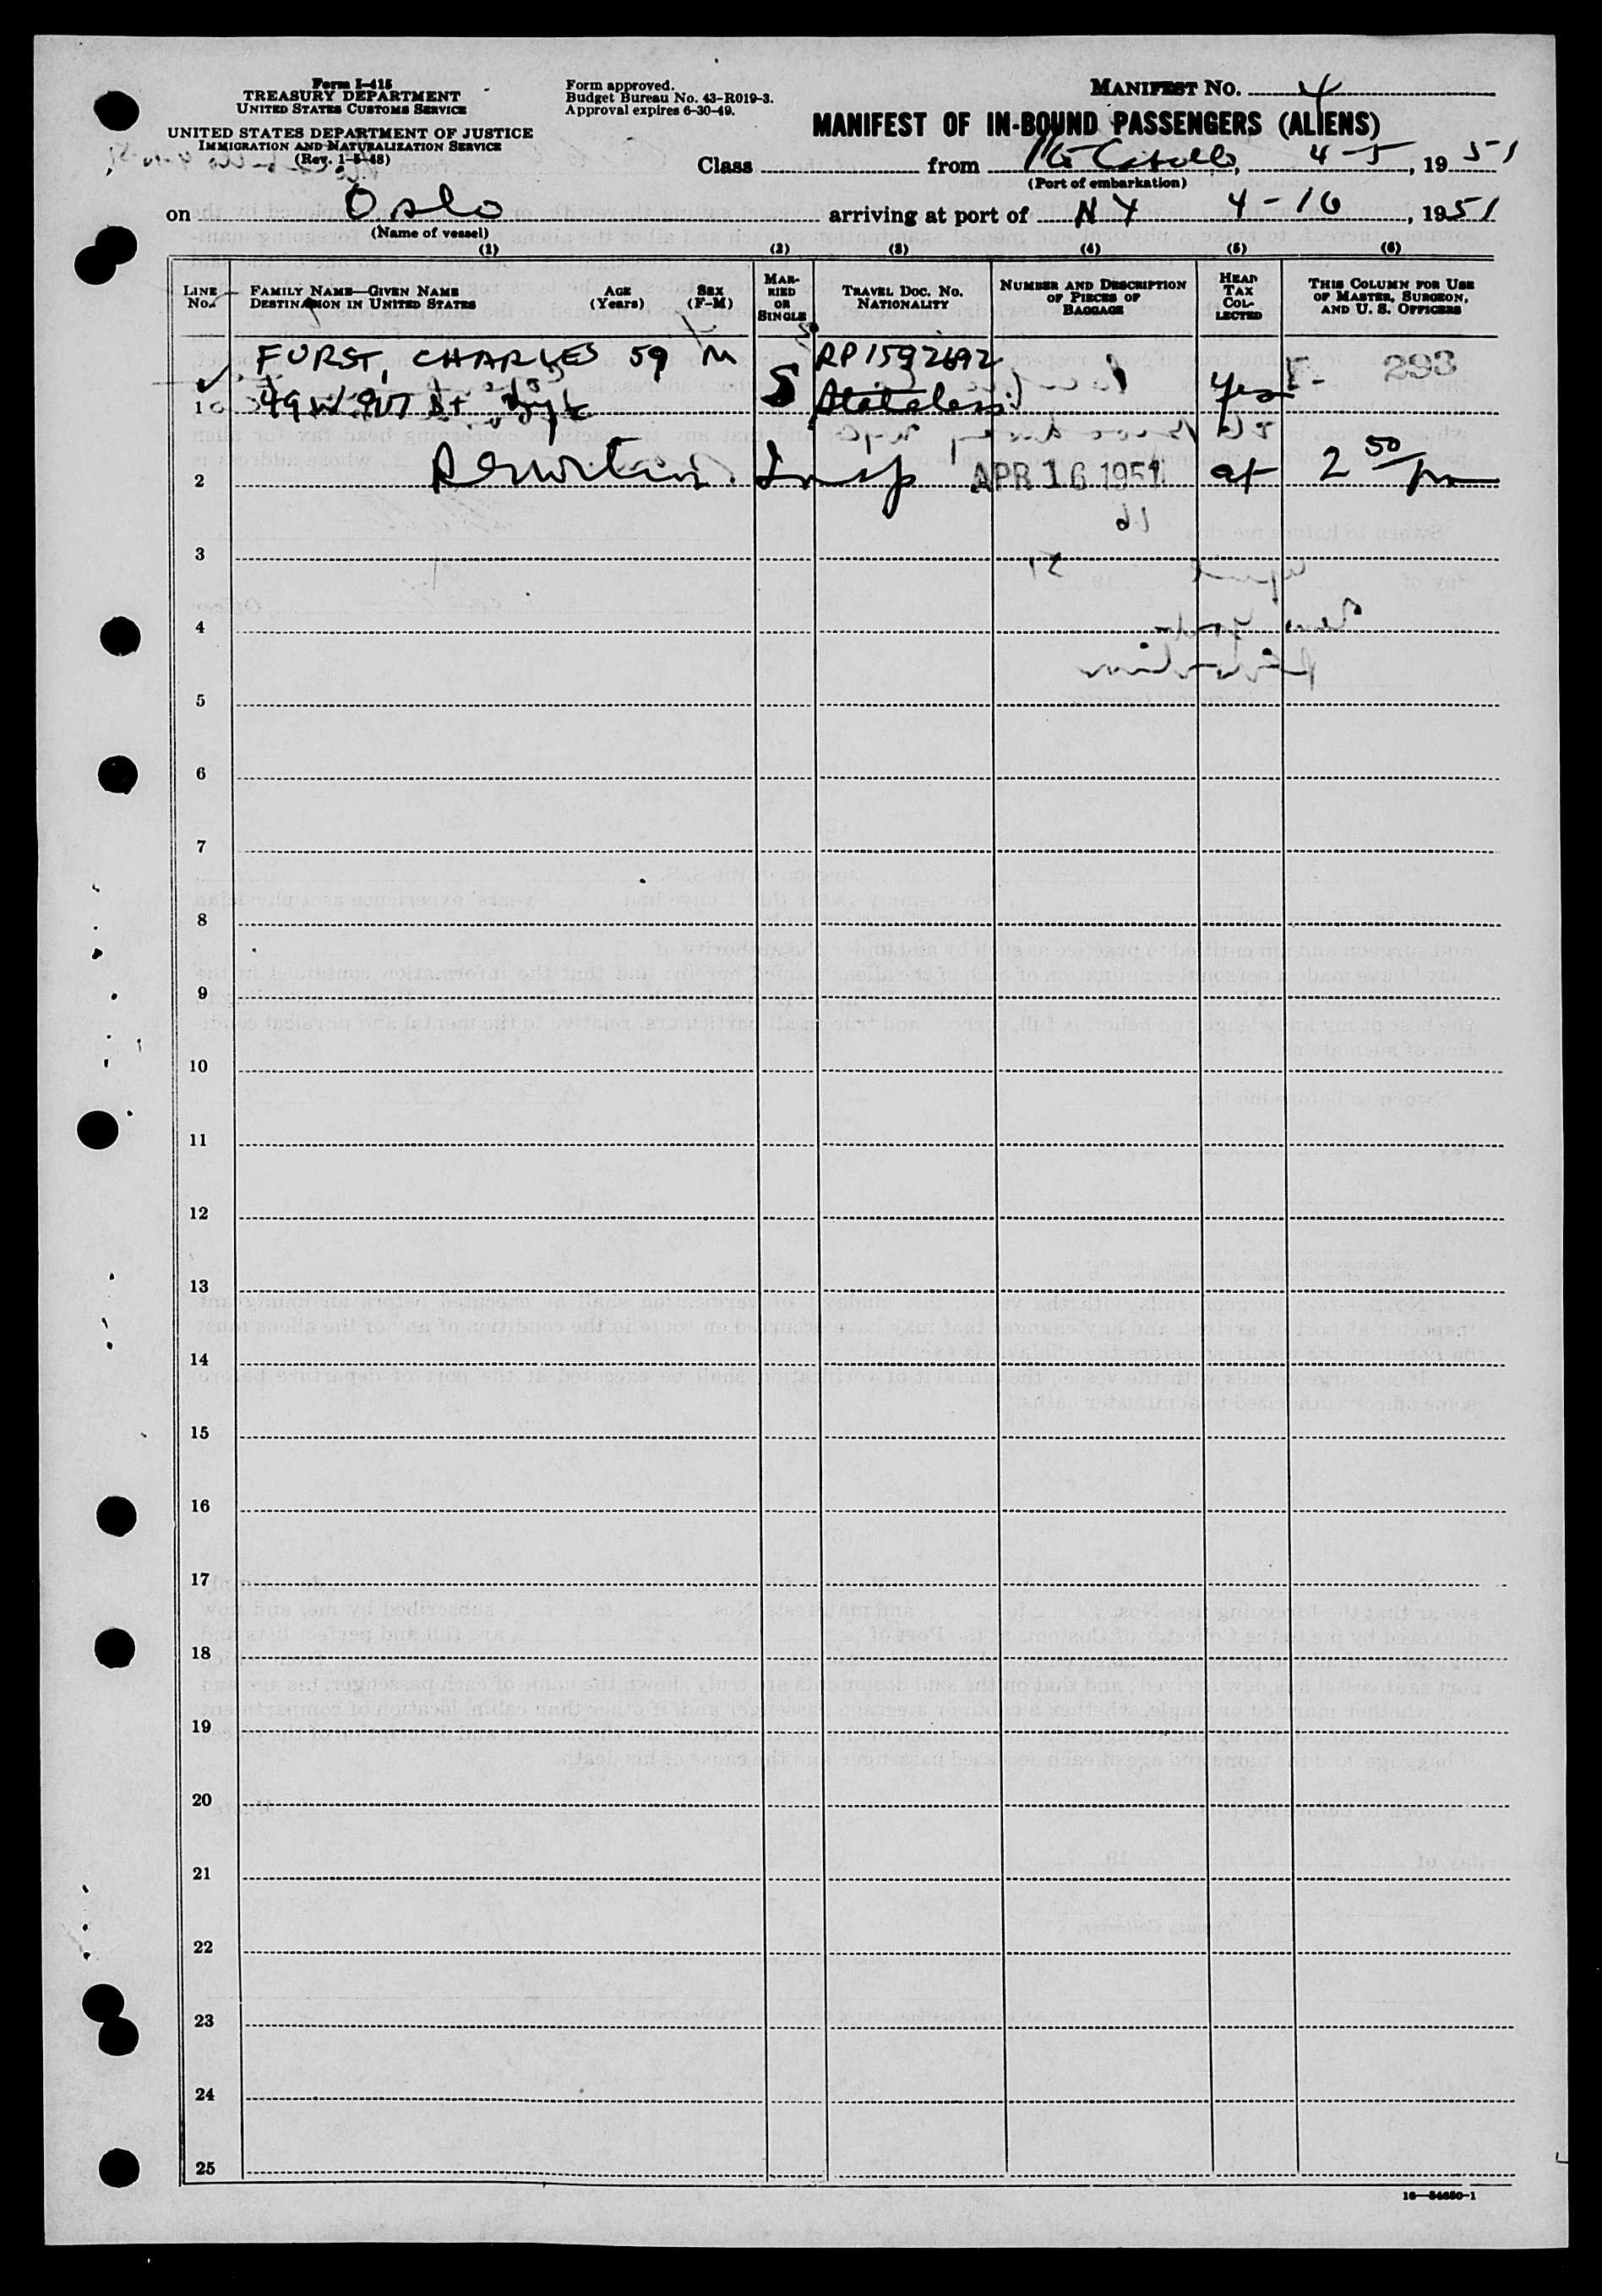 Form I-415
TREASURY DEPARTMENT
UNITED STATES CUSTOMS SERVICE
UNITED STATES DEPARTMENT OF JUSTICE
IMMIGRATION AND NATURALIZATION SERVICE
(Rev. 1-5-48)
Form approved.
Budget Bureau No. 43-R019-3.
Approval expires 6-30-49.
MANIFEST NO. 4
MANIFEST OF IN-BOUND PASSENGERS (ALIENS)
Class from Pto Cabello, 4-5, 1951
(Port of embarkation)
on Oslo arriving at port of NY 4-16, 1951
(Name of vessel)
(1) (2) (3) (4) (5) (6)
LINE No. FAMILY NAME—GIVEN NAME DESTINATION IN UNITED STATES AGE (Years) SEX (F-M) MARRIED OR SINGLE TRAVEL DOC. NO. NATIONALITY NUMBER AND DESCRIPTION OF PIECES OF BAGGAGE HEAD TAX COLLECTED THIS COLUMN FOR USE OF MASTER, SURGEON, AND U. S. OFFICERS
FURST, CHARLES 59 M RP 1592692 293
1 49 W St S Stateless Yes
2 Insp APR 16 1951 at 2 50 pm
3
4
5
6
7
8
9
10
11
12
13
14
15
16
17
18
19
20
21
22
23
24
25
16—54650-1